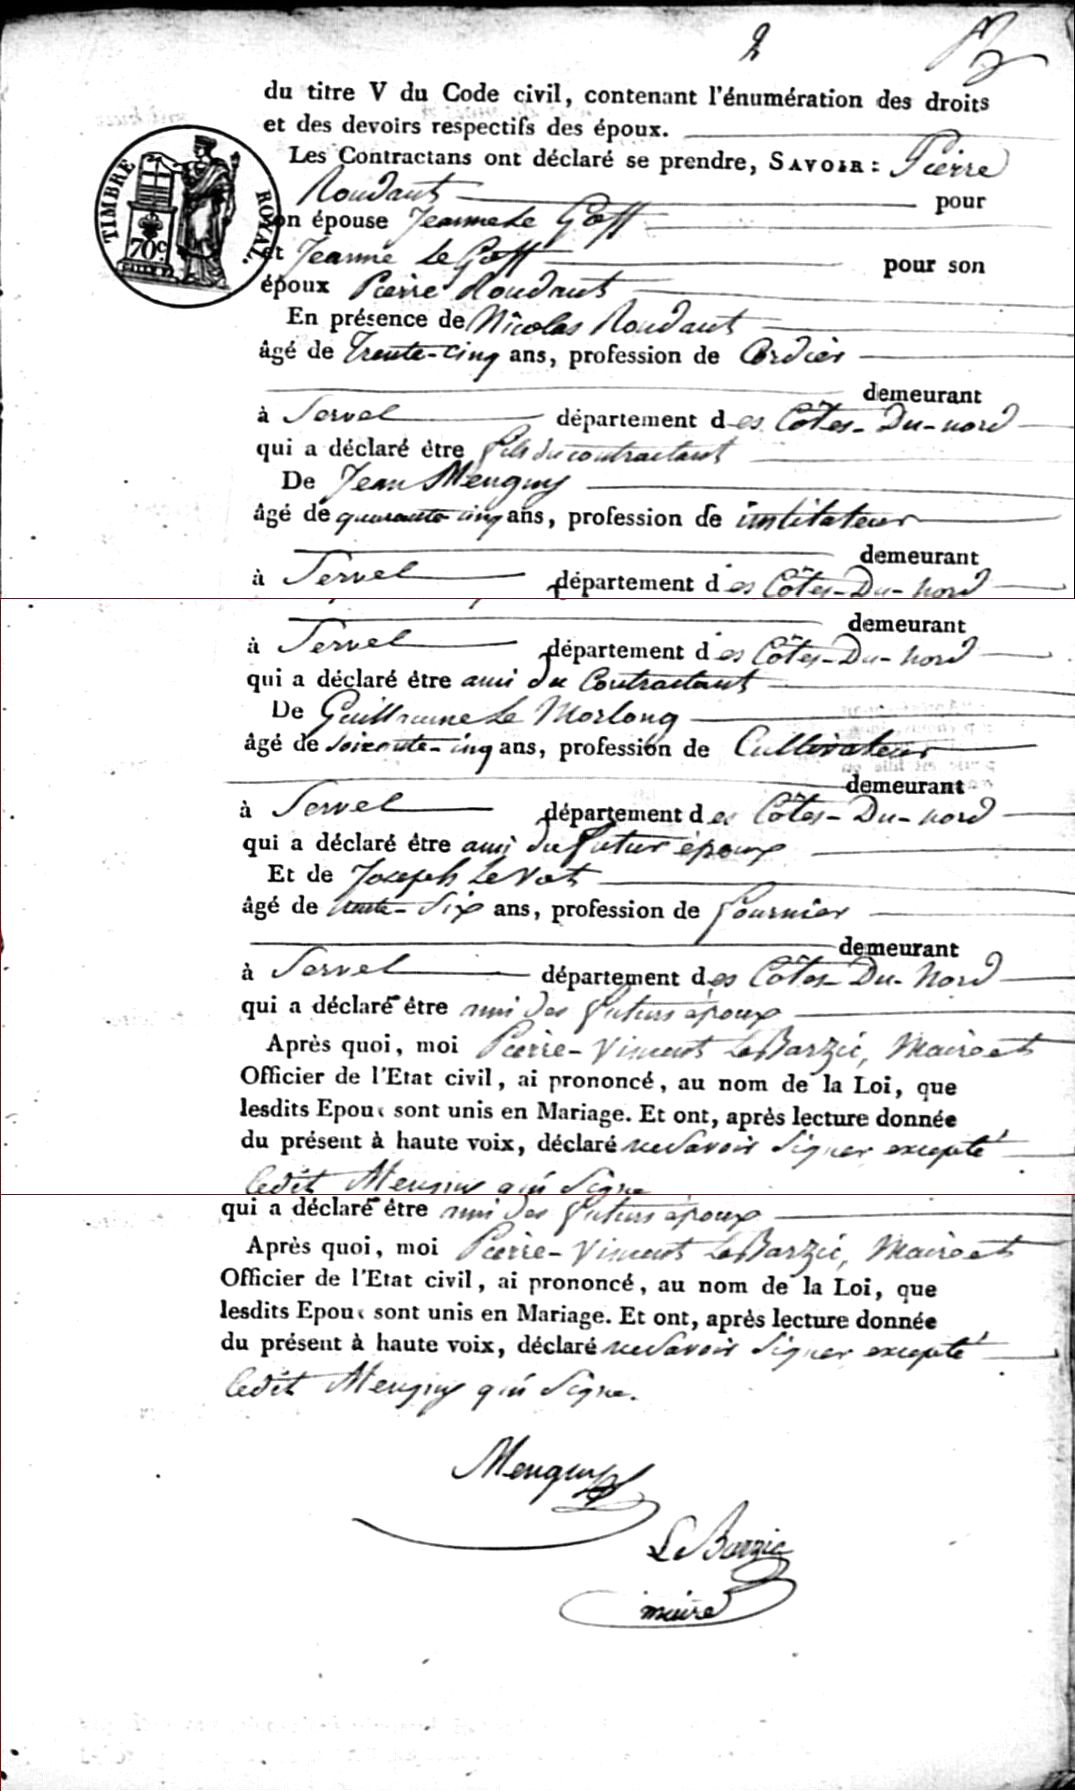 2
du titre V du Code civil, contenant l'énumération des droits
et des devoirs respectifs des époux.
Les Contractans ont déclaré se prendre, SAVOIR : Pierre
Roudaut pour
TIMBRE ROYAL.
70c
on épouse Jeanne Le Goff
et Jeanne Le Goff pour son
époux Pierre Roudaut
En présence de Nicolas Roudaut
âgé de Trente-cinq ans, profession de Cordier
demeurant
à Servel département des Côtes-Du-nord
qui a déclaré être fils du contractant
De Jean Menguy
âgé de quarante cinq ans, profession de instituteur
demeurant
à Servel département des Côtes-Du-Nord
demeurant
à Servel département des Côtes-Du-Nord
qui a déclaré être ami du Contractant
De Guillaume Le Morlong
âgé de soixante-cinq ans, profession de Cultivateur
demeurant
à Servel département des Côtes-Du-nord
qui a déclaré être ami du futur époux
Et de Joseph Le Vot
âgé de trente-Six ans, profession de fournier
demeurant
à Servel département des Côtes-Du-Nord
qui a déclaré être ami des futurs époux
Après quoi, moi Pierre-Vincent Le Barzic, Maire et
Officier de l'Etat civil, ai prononcé, au nom de la Loi, que
lesdits Epoux sont unis en Mariage. Et ont, après lecture donnée
du présent à haute voix, déclaré ne Savoir Signer excepté
ledit Menguy qui Signe
qui a déclaré être ami des futurs époux
Après quoi, moi Pierre-Vincent Le Barzic, Maire et
Officier de l'Etat civil, ai prononcé, au nom de la Loi, que
lesdits Epoux sont unis en Mariage. Et ont, après lecture donnée
du présent à haute voix, déclaré ne Savoir Signer excepté
ledit Menguy qui Signe.
Menguy
Le Barzic
maire